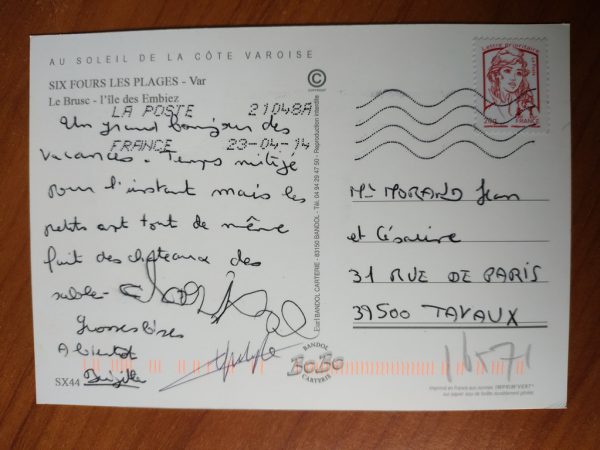 AU SOLEIL DE LA CÔTE VAROISE
SIX FOURS LES PLAGES - Var
Le Brusc - l'île des Embiez
LA POSTE 21048A
FRANCE 23-04-14
Un grand bonjour des
vacances. Temps mitigé
pour l'instant mais les
petits ont tout de même
fait des chateaux des
sable.
Grosses bises
A bientot
Brigitte
SX44
©
COPYRIGHT
Eurl BANDOL CARTERIE - 83150 BANDOL - Tél. 04 94 29 47 50 - Reproduction interdite
BANDOL
BoBo
CARTERIE
Lettre prioritaire
20g FRANCE
Mr MORAND Jean
et Césarine
31 RUE DE PARIS
39500 TAVAUX
imprimé en France aux normes IMPRIM'VERT®
sur papier issu de forêts durablement gérées.